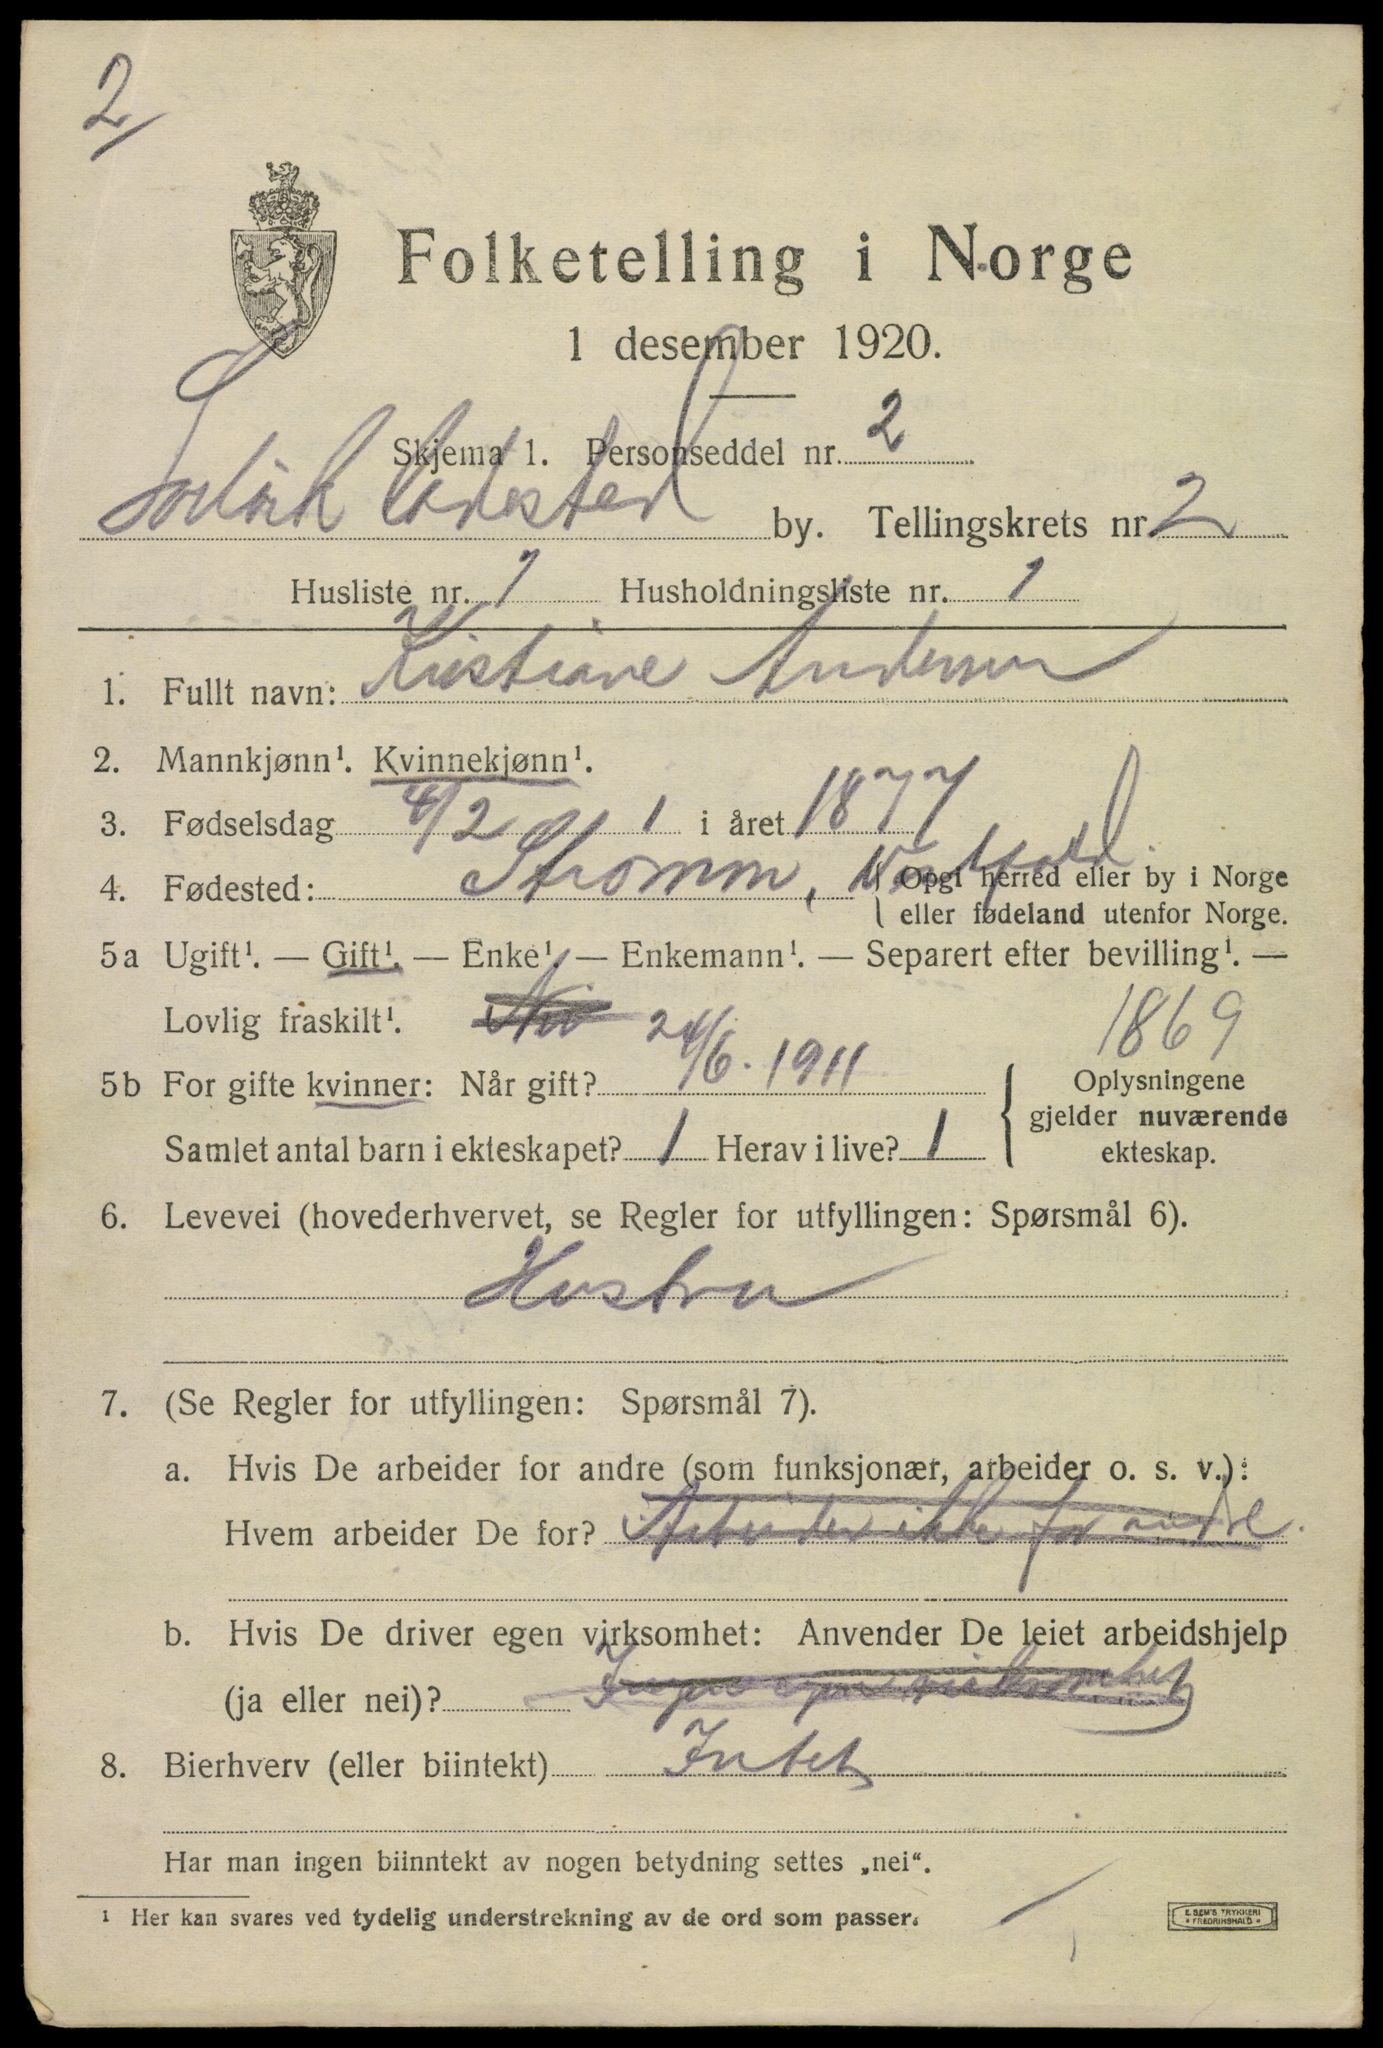 2
Folketelling i Norge
1 desember 1920.
Skjema 1. Personseddel nr. 2
by. Tellingskrets nr 2
Husliste nr. 1 Husholdningsliste nr. 1
1. Fullt navn: Kristiane Andersen
2. Mannkjønn¹. Kvinnekjønn¹.
3. Fødselsdag 4/2 1 i året 1877
4. Fødested: Strømm, Vestfold. { Opgi herred eller by i Norge
eller fødeland utenfor Norge.
5a Ugift¹. — Gift¹. — Enke¹. — Enkemann¹. — Separert efter bevilling¹. —
Lovlig fraskilt¹. 1869
5b For gifte kvinner: Når gift? 24/6. 1911
Samlet antal barn i ekteskapet? 1 Herav i live? 1
Oplysningene
gjelder nuværende
ekteskap.
6. Levevei (hovederhvervet, se Regler for utfyllingen: Spørsmål 6).
Hustru
7. (Se Regler for utfyllingen: Spørsmål 7).
a. Hvis De arbeider for andre (som funksjonær, arbeider o. s. v.):
Hvem arbeider De for? Arbeider ikke for andre.
b. Hvis De driver egen virksomhet: Anvender De leiet arbeidshjelp
(ja eller nei)? Ingen egen virksomhet
8. Bierhverv (eller biintekt) Intet
Har man ingen biinntekt av nogen betydning settes „nei“.
¹ Her kan svares ved tydelig understrekning av de ord som passer.
E. SEM'S TRYKKERI
* FREDRIKSHALD *